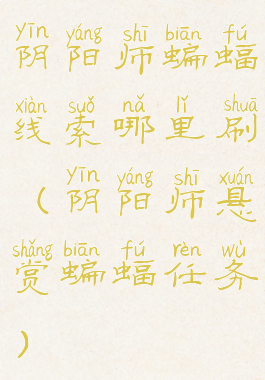 yīn yáng shī biān fú
阴阳师蝙蝠
xiàn suǒ nǎ lǐ shuā
线索哪里刷
yīn yáng shī xuán
(阴阳师悬
shǎng biān fú rèn wù
赏蝙蝠任务
)